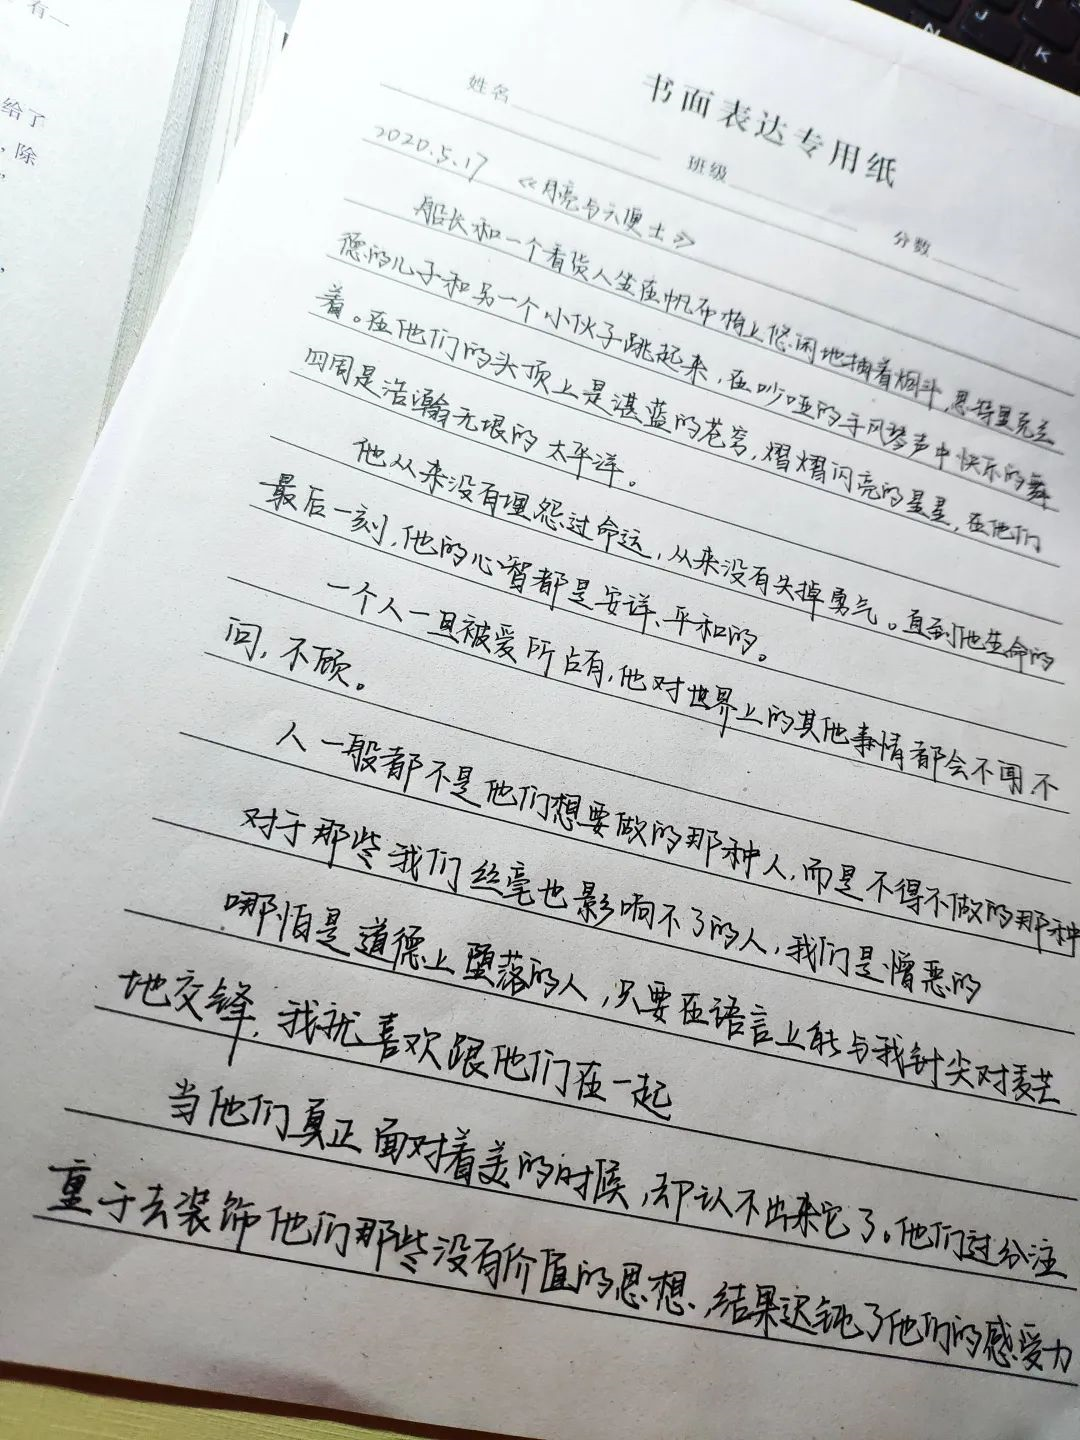 有一
给了
，除
书面表达专用纸
姓名 班级 分数
2020.5.17 《月亮与六便士》
船长和一个看货人坐在帆布椅上悠闲地抽着烟斗，思特里克兰
德的儿子和另一个小伙子跳起来，在吵哑的手风琴声中快乐的舞
着。在他们的头顶上是湛蓝的苍穹，熠熠闪亮的星星，在他们
四周是浩瀚无垠的太平洋。
他从来没有埋怨过命运，从来没有失掉勇气。直到他生命的
最后一刻，他的心智都是安详、平和的。
一个人一旦被爱所占有，他对世界上的其他事情都会不闻，不
问，不顾。
人一般都不是他们想要做的那种人，而是不得不做的那种
对于那些我们丝毫也影响不了的人，我们是憎恶的
哪怕是道德上堕落的人，只要在语言上能与我针尖对麦芒
地交锋，我就喜欢跟他们在一起
当他们真正面对着美的时候，却认不出来它了。他们过分注
重于去装饰他们那些没有价值的思想，结果迟钝了他们的感受力